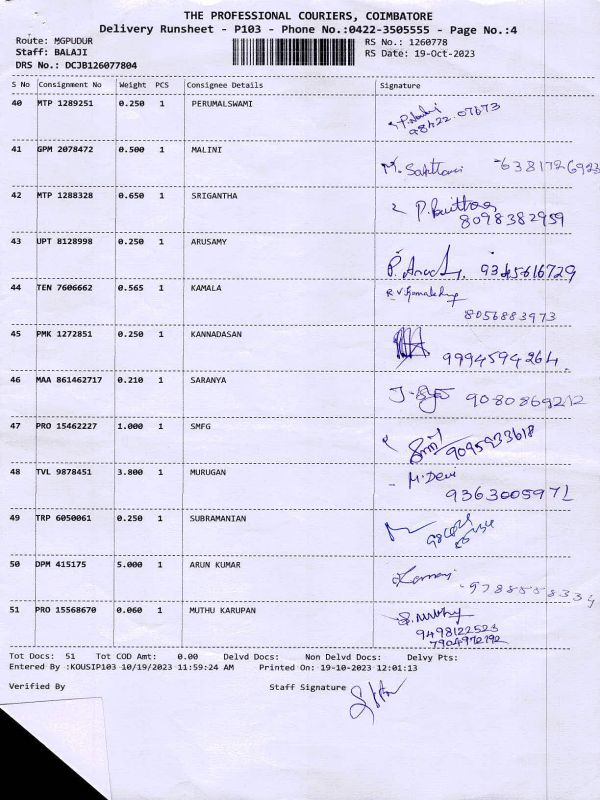 THE PROFESSIONAL COURIERS, COIMBATORE
Delivery Runsheet - P103 - Phone No.:0422-3505555 - Page No.:4
Route: MGPUDUR RS No.: 1260778
Staff: BALAJI RS Date: 19-Oct-2023
DRS No.: DCJB126077804
S No Consignment No Weight PCS Consignee Details Signature
40 MTP 1289251 0.250 1 PERUMALSWAMI
98422 07673
41 GPM 2078472 0.500 1 MALINI
6381726923
42 MTP 1288328 0.650 1 SRIGANTHA
8098382959
43 UPT 8128998 0.250 1 ARUSAMY
9345616729
44 TEN 7606662 0.565 1 KAMALA
8056883973
45 PMK 1272851 0.250 1 KANNADASAN
9994594264
46 MAA 861462717 0.210 1 SARANYA
9080869212
47 PRO 15462227 1.000 1 SMFG
9095933618
48 TVL 9878451 3.800 1 MURUGAN M. Devi
9363005971
49 TRP 6050061 0.250 1 SUBRAMANIAN
50 DPM 415175 5.000 1 ARUN KUMAR
9788558334
51 PRO 15568670 0.060 1 MUTHU KARUPAN
9498122523
7904972192
Tot Docs: 51 Tot COD Amt: 0.00 Delvd Docs: Non Delvd Docs: Delvy Pts:
Entered By :KOUSIP103 10/19/2023 11:59:24 AM Printed On: 19-10-2023 12:01:13
Verified By Staff Signature